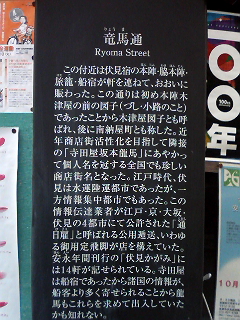 りょう ま
竜馬通
Ryoma Street
この付近は伏見宿の本陣・脇本陣・
旅籠・船宿が軒を連ねて、おおいに
賑わった。この通りは初め本陣木
津屋の前の図子(づし・小路のこと)
であったことから木津屋図子とも呼
ばれ、後に南納屋町とも称した。近
年商店街活性化を目指して隣接
の「寺田屋坂本龍馬」にあやかっ
て個人名を冠する全国でも珍しい
商店街名となった。江戸時代、伏
見は水運陸運都市であったが、一
方情報集中都市でもあった。この
情報伝達業者が江戸・京・大坂・
伏見の4都市にて公許された「通
日雇」と呼ばれる公用逓送、いわゆ
る御用定飛脚が店を構えていた。
安永年間刊行の「伏見かがみ」に
は14軒が記せられている。寺田屋
は船宿であったから諸国の情報が、
船客より多く寄せられることから龍
馬もこれらを求めて出入していた
かも知れない。
100
年
10月